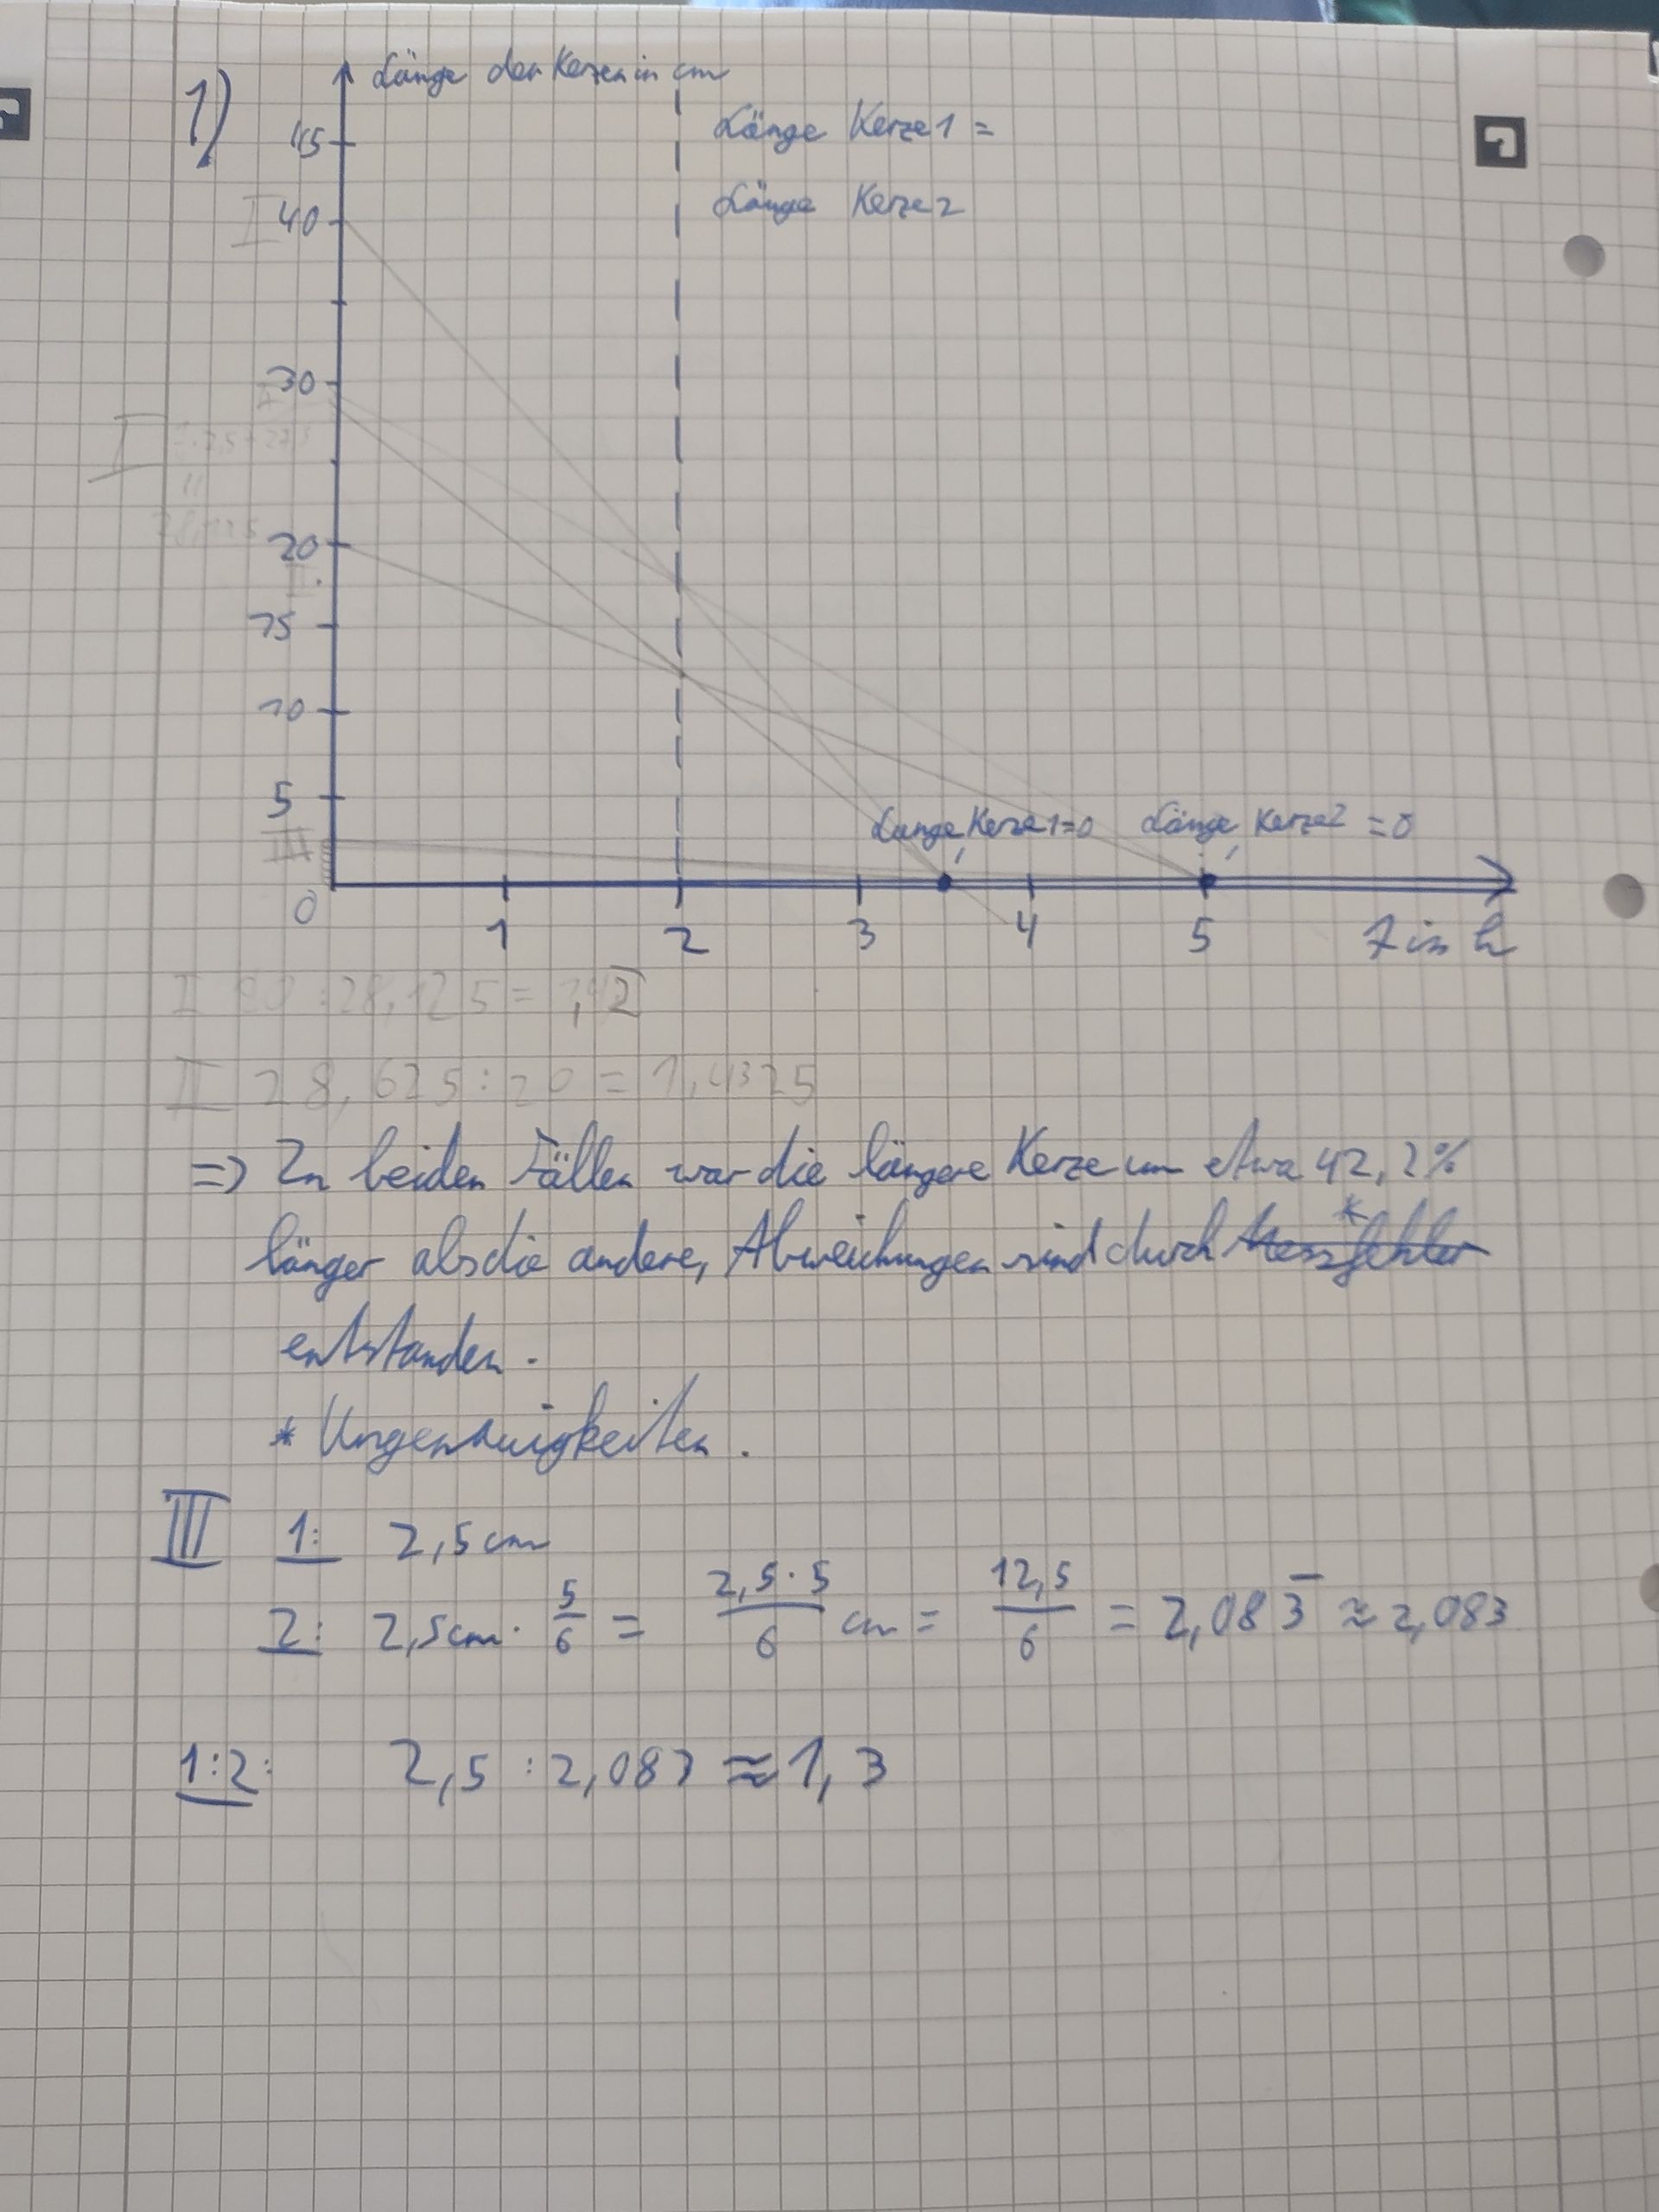 1)
Länge der Kerzen in cm
Länge Kerze 1 =
Länge Kerze 2
45
I 40
30
I
28,125
20
II
15
10
5
III
0
Länge, Kerze 1 = 0 Länge, Kerze 2 = 0
1 2 3 4 5 in h
I 40 : 28,125 = 1,42
II 28,625 : 20 = 1,4325
=> In beiden Fällen war die längere Kerze um etwa 42,2%
länger als die andere, Abweichungen sind durch * Messfehler
entstanden.
* Ungenauigkeiten.
III 1: 2,5 cm
2: 2,5cm · 5/6 = 2,5·5/6 cm = 12,5/6 = 2,083̅ ≈ 2,083
1:2: 2,5 : 2,083 ≈ 1,3